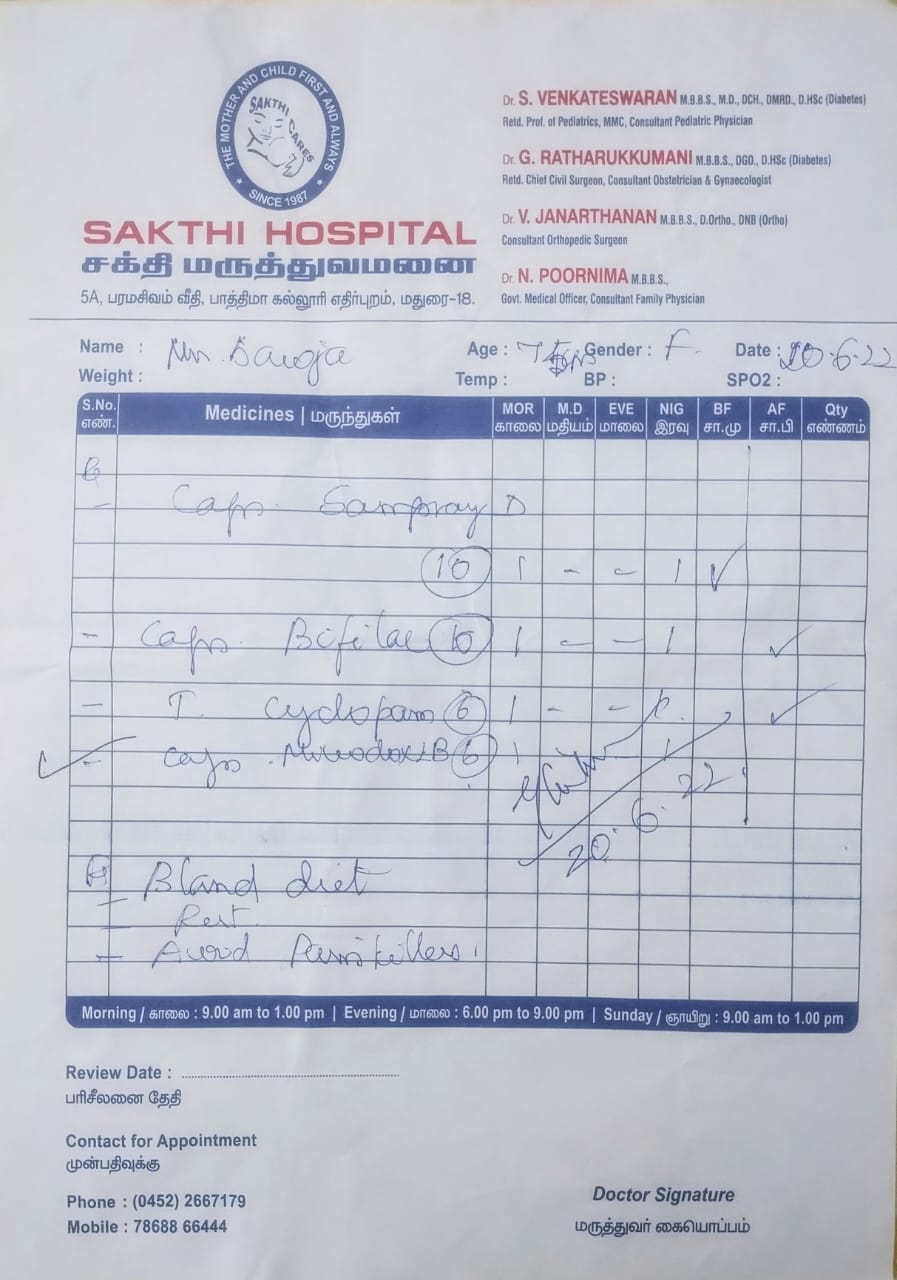 THE MOTHER AND CHILD FIRST AND ALWAYS
SAKTHI CARES
SINCE 1987
SAKTHI HOSPITAL
சக்தி மருத்துவமனை
5A, பரமசிவம் வீதி, பாத்திமா கல்லூரி எதிர்புறம், மதுரை-18.
Dr. S. VENKATESWARAN M.B.B.S., M.D., DCH., DMRD., D.HSc (Diabetes)
Retd. Prof. of Pediatrics, MMC, Consultant Pediatric Physician
Dr. G. RATHARUKKUMANI M.B.B.S., DGO., D.HSc (Diabetes)
Retd. Chief Civil Surgeon, Consultant Obstetrician & Gynaecologist
Dr. V. JANARTHANAN M.B.B.S., D.Ortho., DNB (Ortho)
Consultant Orthopedic Surgeon
Dr. N. POORNIMA M.B.B.S.,
Govt. Medical Officer, Consultant Family Physician
Name : Age : Gender : F. Date : 20.6.22
Weight : Temp : BP : SPO2 :
S.No. Medicines | மருந்துகள் MOR M.D EVE NIG BF AF Qty
எண். காலை மதியம் மாலை இரவு சா.மு சா.பி எண்ணம்
Caps. D
10 1 - - 1 ✓
- Caps. Bifilac 10 1 - - 1 ✓
- T. Cyclopam 6 1 - - ✓
✓ - Caps 6 1 1
20.6.22
Bland diet
- Rest
- Avoid Painkillers.
Morning / காலை : 9.00 am to 1.00 pm | Evening / மாலை : 6.00 pm to 9.00 pm | Sunday / ஞாயிறு : 9.00 am to 1.00 pm
Review Date :
பரிசீலனை தேதி
Contact for Appointment
முன்பதிவுக்கு
Phone : (0452) 2667179
Mobile : 78688 66444
Doctor Signature
மருத்துவர் கையொப்பம்